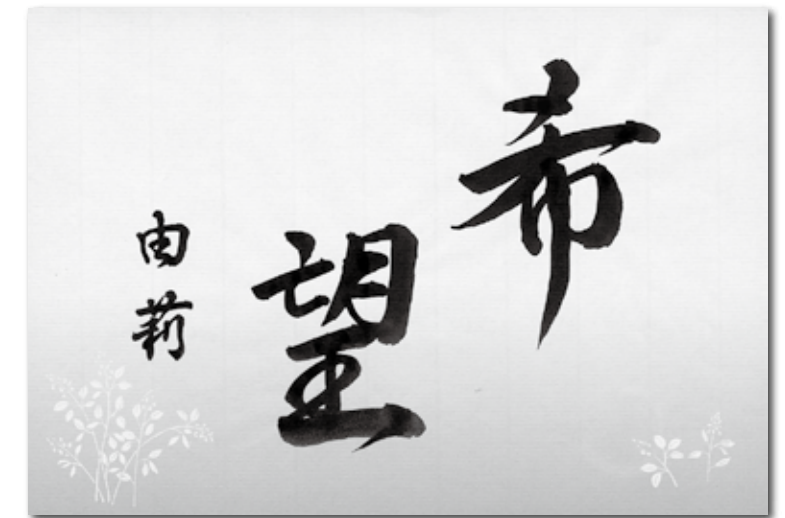 希望
由莉